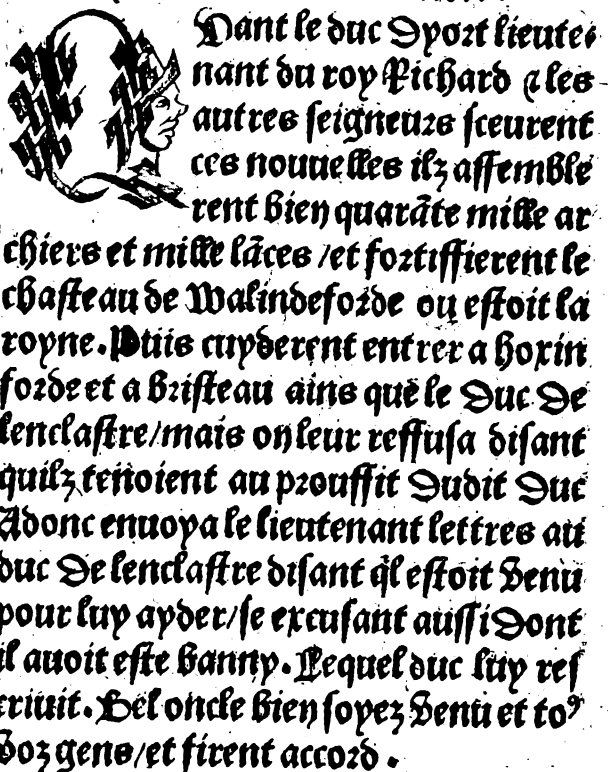 Quant le duc dyort lieute-
nant du roy Richard & les
autres seigneurs sceurent
ces nouuelles ilz assemble
rent bien quarãte mille ar
chiers et mille lãces /et fortiffierent le
chasteau de Walindeforde ou estoit la
royne. Puis cuyderent entrer a hoxin
forde et a bristeau ains que le duc de
lenclastre/mais on leur reffusa disant
quilz tenoient au prouffit dudit duc
Adonc enuoya le lieutenant lettres au
duc de lenclastre disant q̃l estoit venu
pour luy ayder/se excusant aussi dont
il auoit este banny. Lequel duc luy res
criuit. Bel oncle bien soyez venu et toꝰ
voz gens/et firent accord .